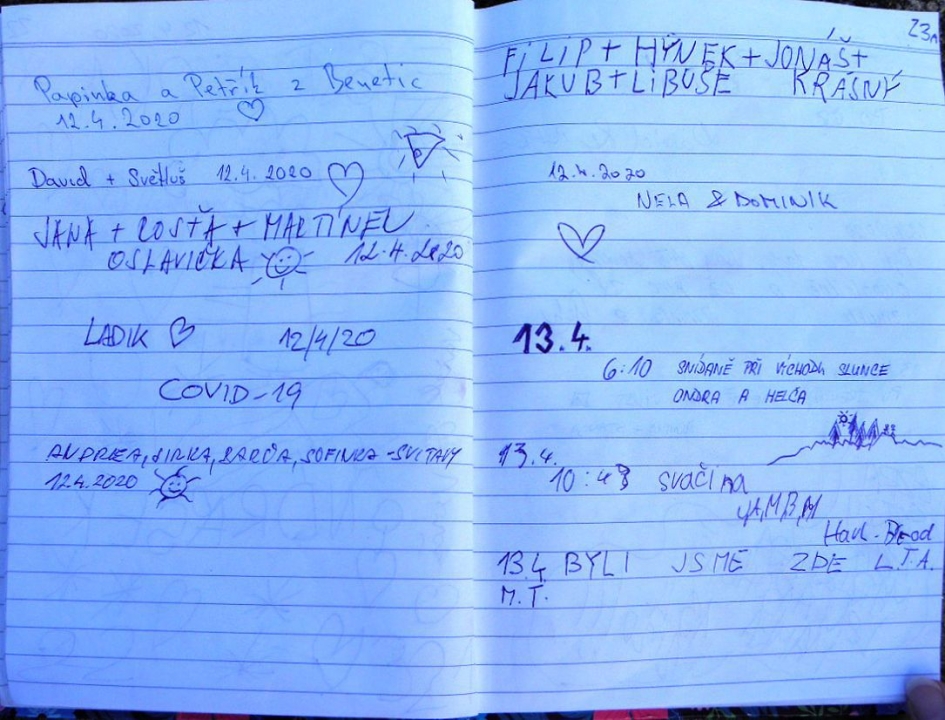 Papinka a Petřík z Benetic
12.4.2020
David + Světluš 12.4.2020
JANA + ROSŤA + MARTÍNEK
OSLAVIČKA 12.4.2020
LADIK 12/4/20
COVID-19
ANDREA, JIRKA, SÁRČA, SOFINKA - SVITAVY
12.4.2020
FILIP + HYNEK + JONÁŠ +
JAKUB + LIBUŠE KRÁSNÝ
12.4.2020
NELA & DOMINIK
13.4.
6:10 SNÍDANĚ PŘI VÝCHODU SLUNCE
ONDRA A HELČA
13.4.
10:48 svačina
Havl. Brod
13.4. BYLI JSME ZDE L.T.A.
M.T.